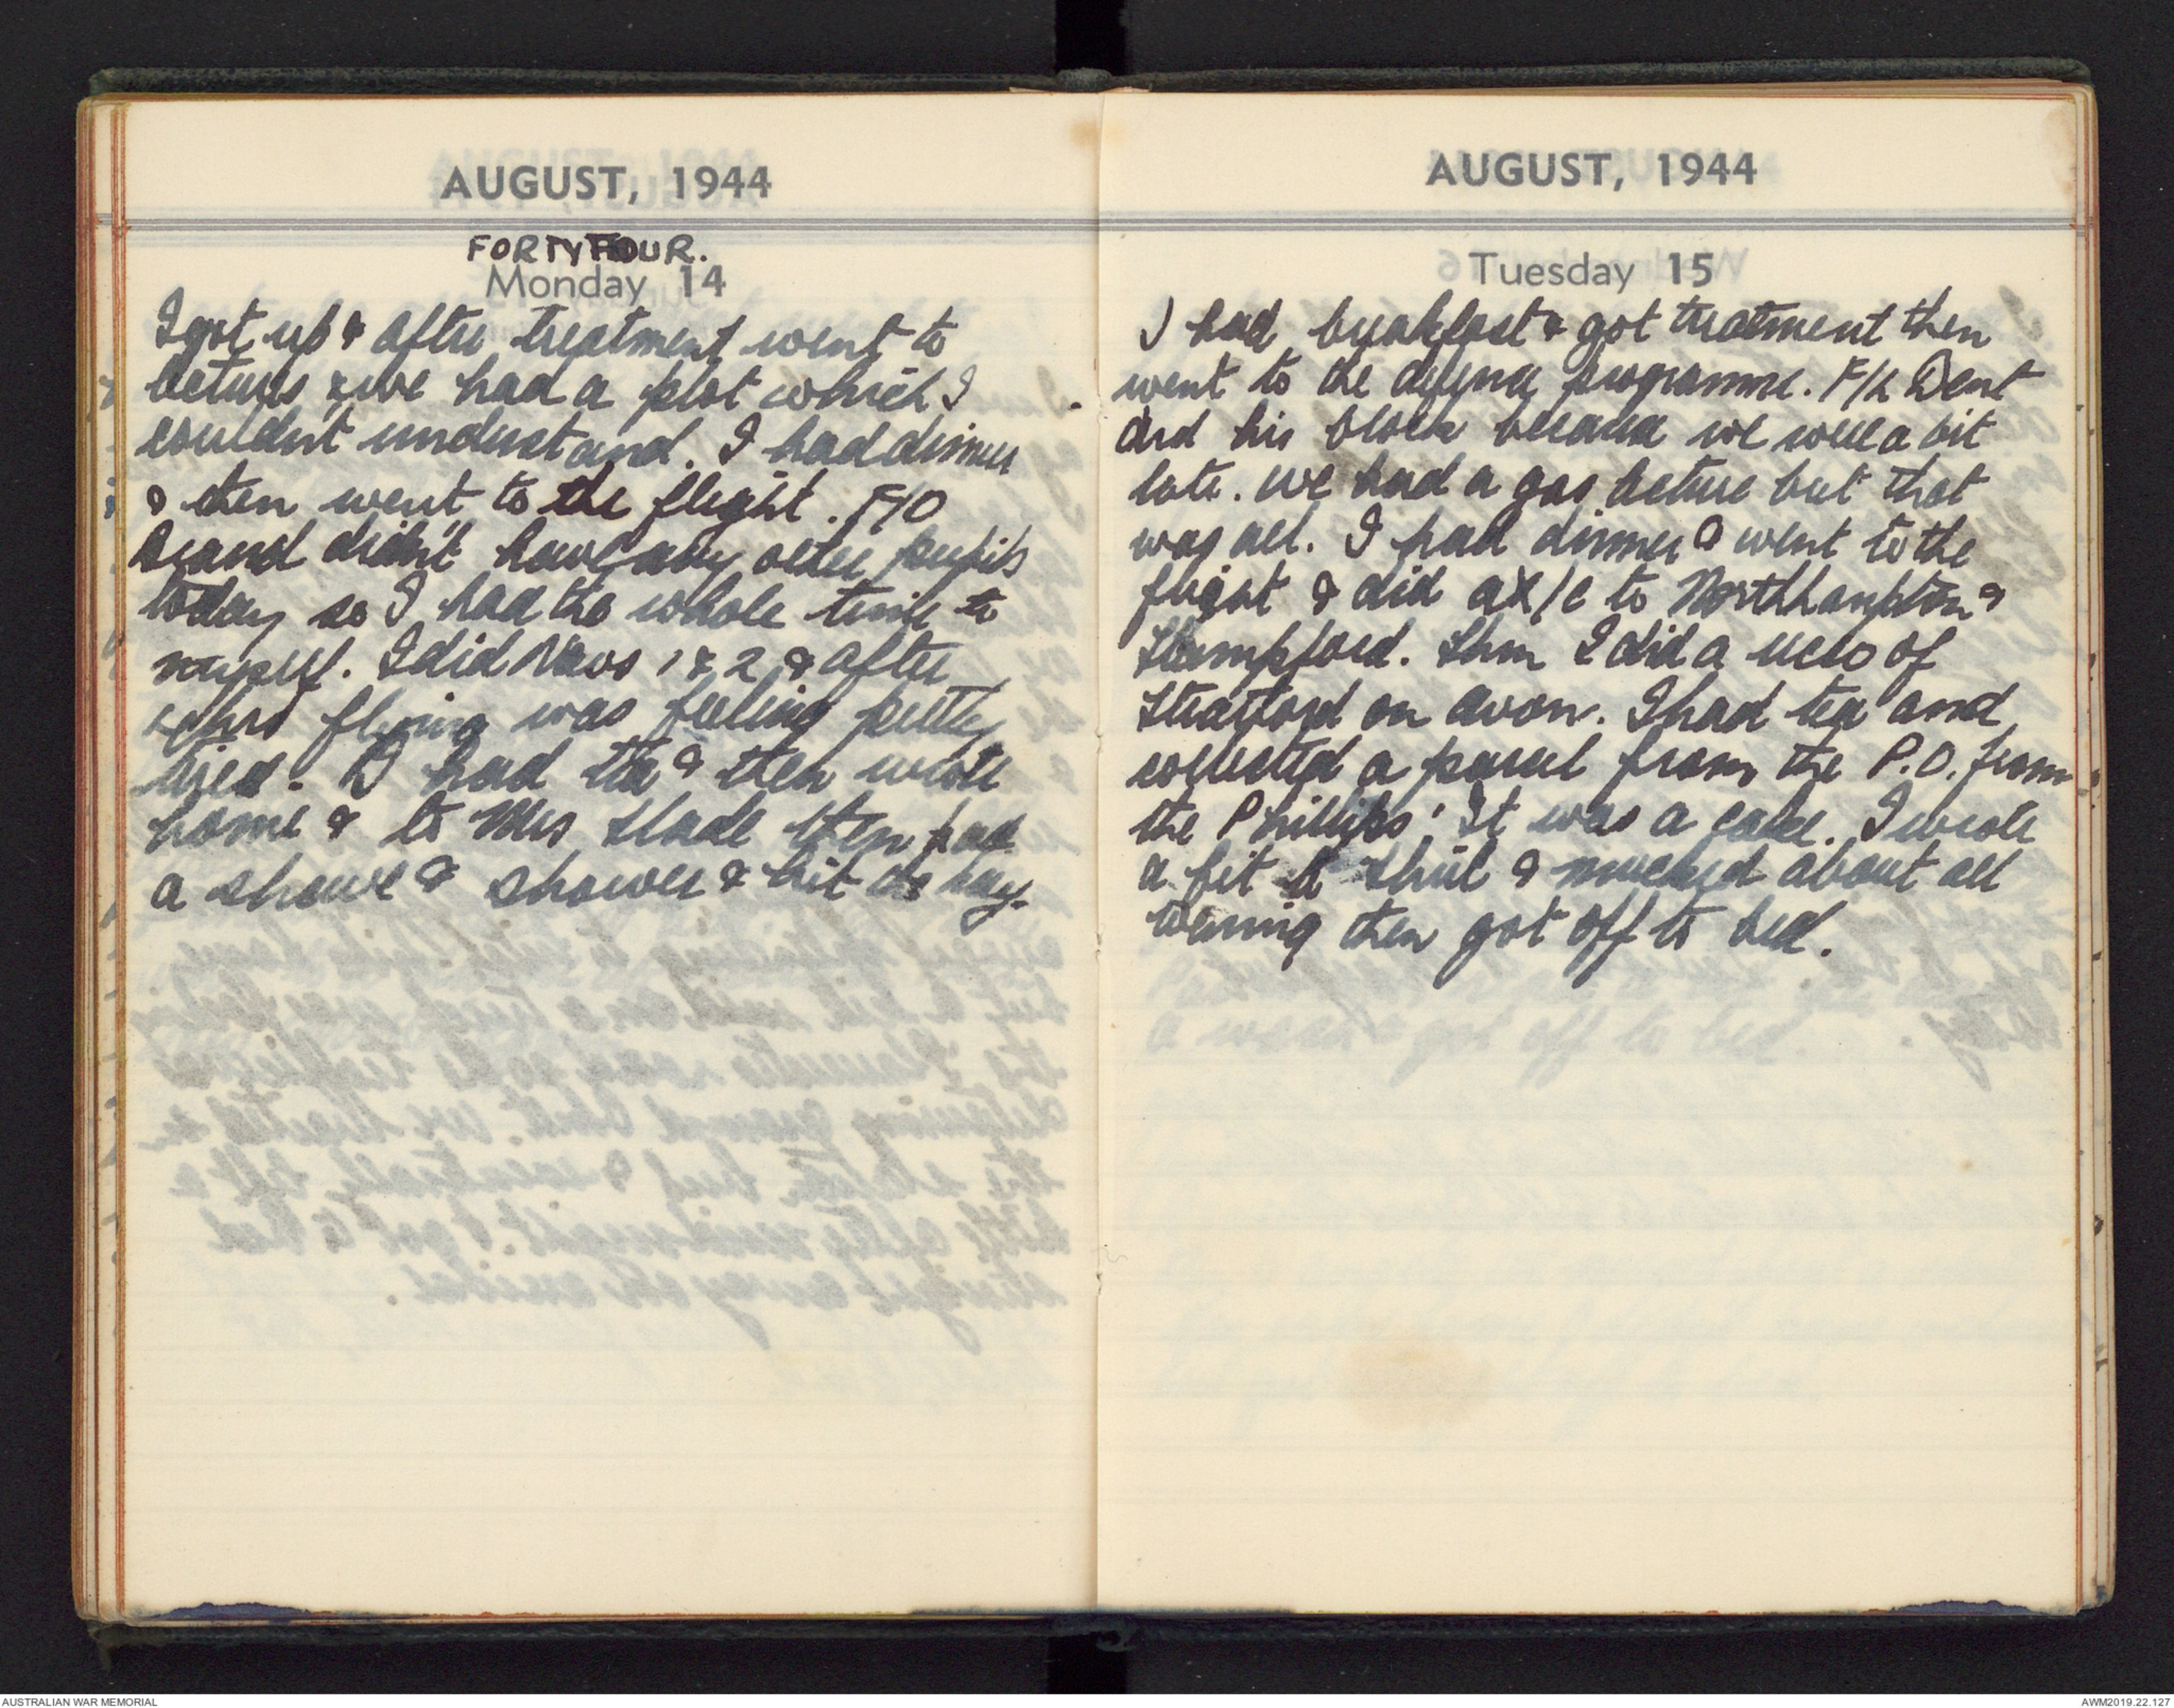 AUGUST, 1944
FORTYFOUR.
Monday 14
I got up & after treatment went to
lectures & we had a plot which I
couldn't understand. I had dinner
& then went to the flight. F/O
Brand didn't have any other pupils
today so I had the whole time to
myself. I did Navs 1 & 2 & after
4 hrs flying was feeling pretty
tired. I had tea & then wrote
home & to Mrs Slade then had
a shave & shower & hit the hay.
AUGUST, 1944
Tuesday 15
I had breakfast & got treatment then
went to the defence programme. F/L Dent
did his block because we were a bit
late. We had a gas lecture but that
was all. I had dinner & went to the
flight & did a X/C to Northhampton &
Stampford. Then I did a recco of
Stratford on Avon. I had tea and
collected a parcel from the P.O. from
the Phillips'. It was a cake. I wrote
a bit & mucked about all
evening then got off to bed.
AUSTRALIAN WAR MEMORIAL
AWM2019.22.127